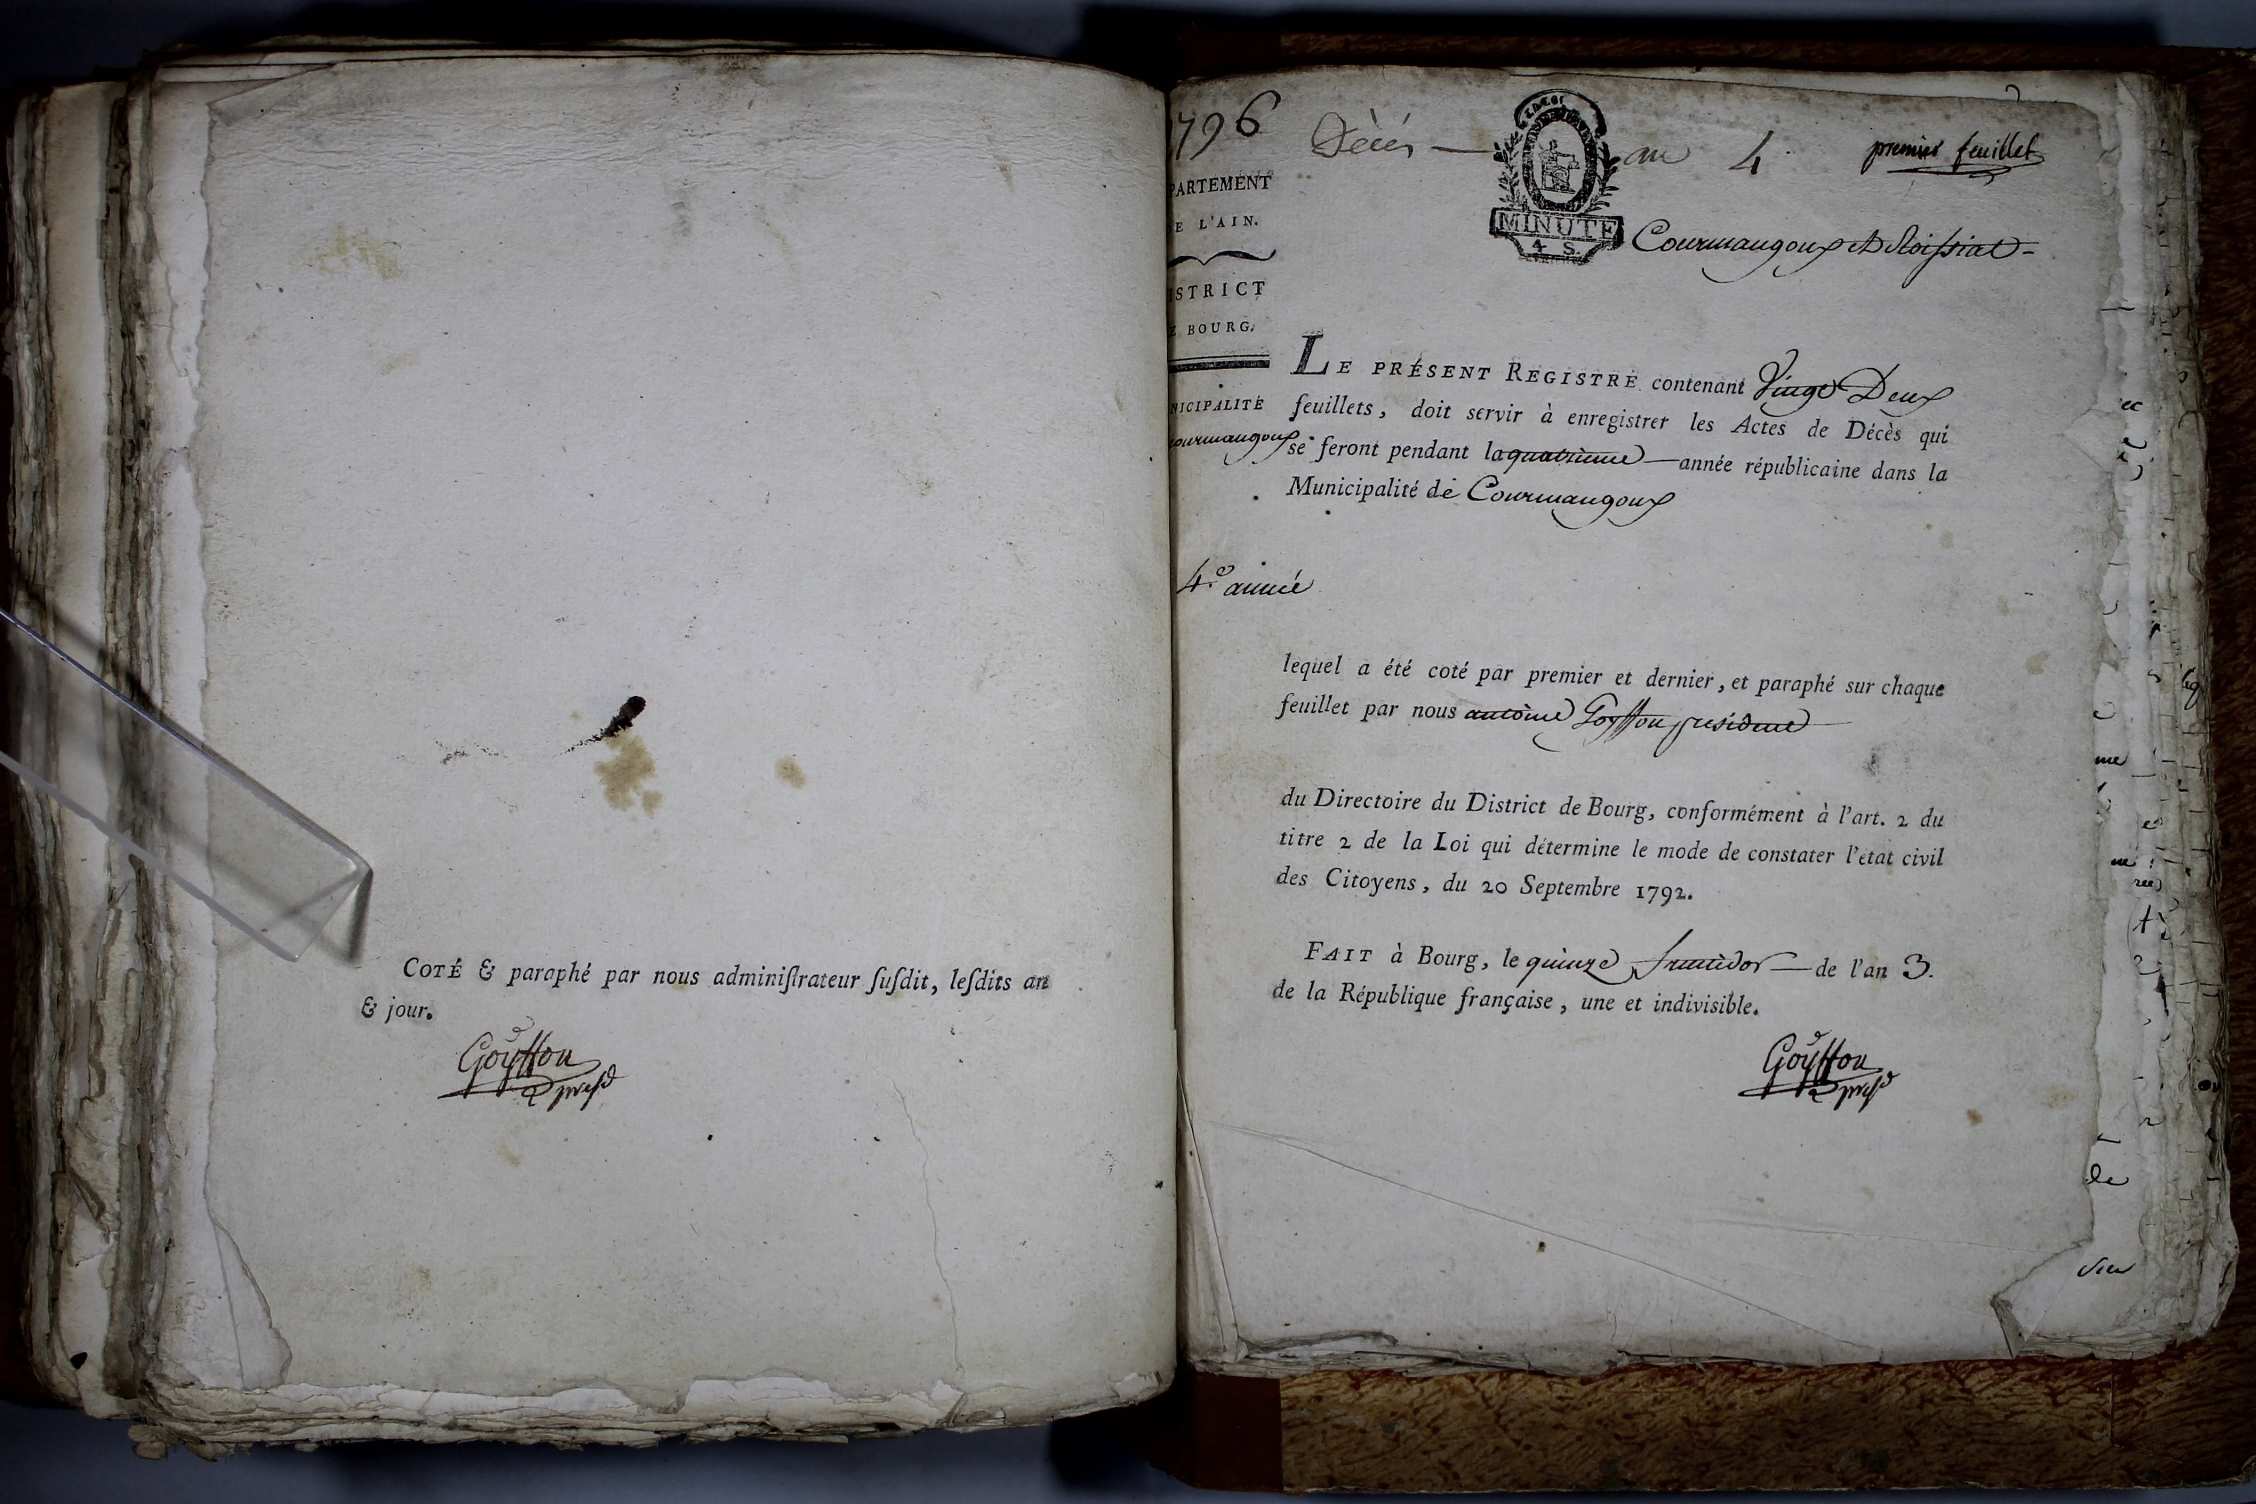 COTÉ & paraphé par nous adminiſtrateur ſuſdit, leſdits an
& jour.
Goÿffon
presd
1796 Décès — an 4
premier feuillet
MINUTE
4 S.
Courmangoux et Roissiat
PARTEMENT
E L'AIN.
ISTRICT
E BOURG.
NICIPALITÉ
ourmangoux
4.e année
LE PRÉSENT REGISTRE contenant Vingt Deux
feuillets, doit servir à enregistrer les Actes de Décès qui
se feront pendant la quatrieme année républicaine dans la
Municipalité de Courmangoux
lequel a été coté par premier et dernier, et paraphé sur chaque
feuillet par nous antoine Goÿffon president
du Directoire du District de Bourg, conformément à l'art. 2 du
titre 2 de la Loi qui détermine le mode de constater l'état civil
des Citoyens, du 20 Septembre 1792.
FAIT à Bourg, le quinze fructidor de l'an 3.
de la République française, une et indivisible.
Goÿffon
presd